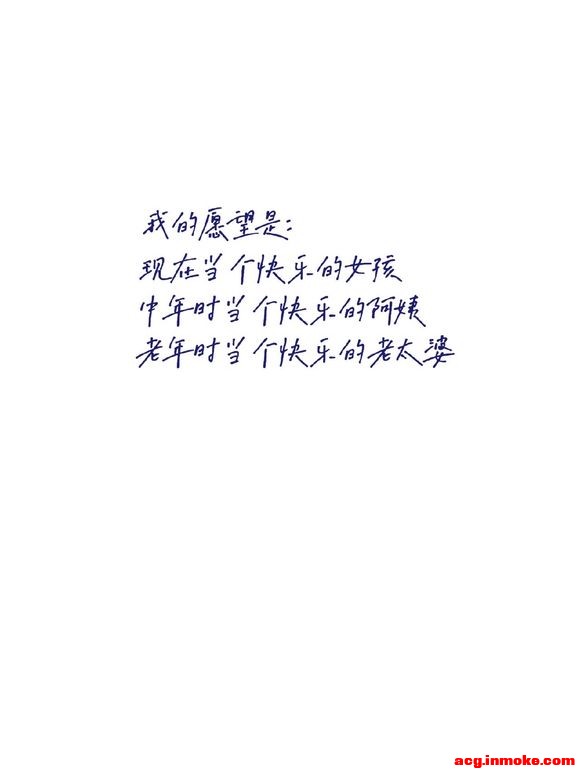 我的愿望是：
现在当个快乐的女孩
中年时当个快乐的阿姨
老年时当个快乐的老太婆
acg.inmoke.com